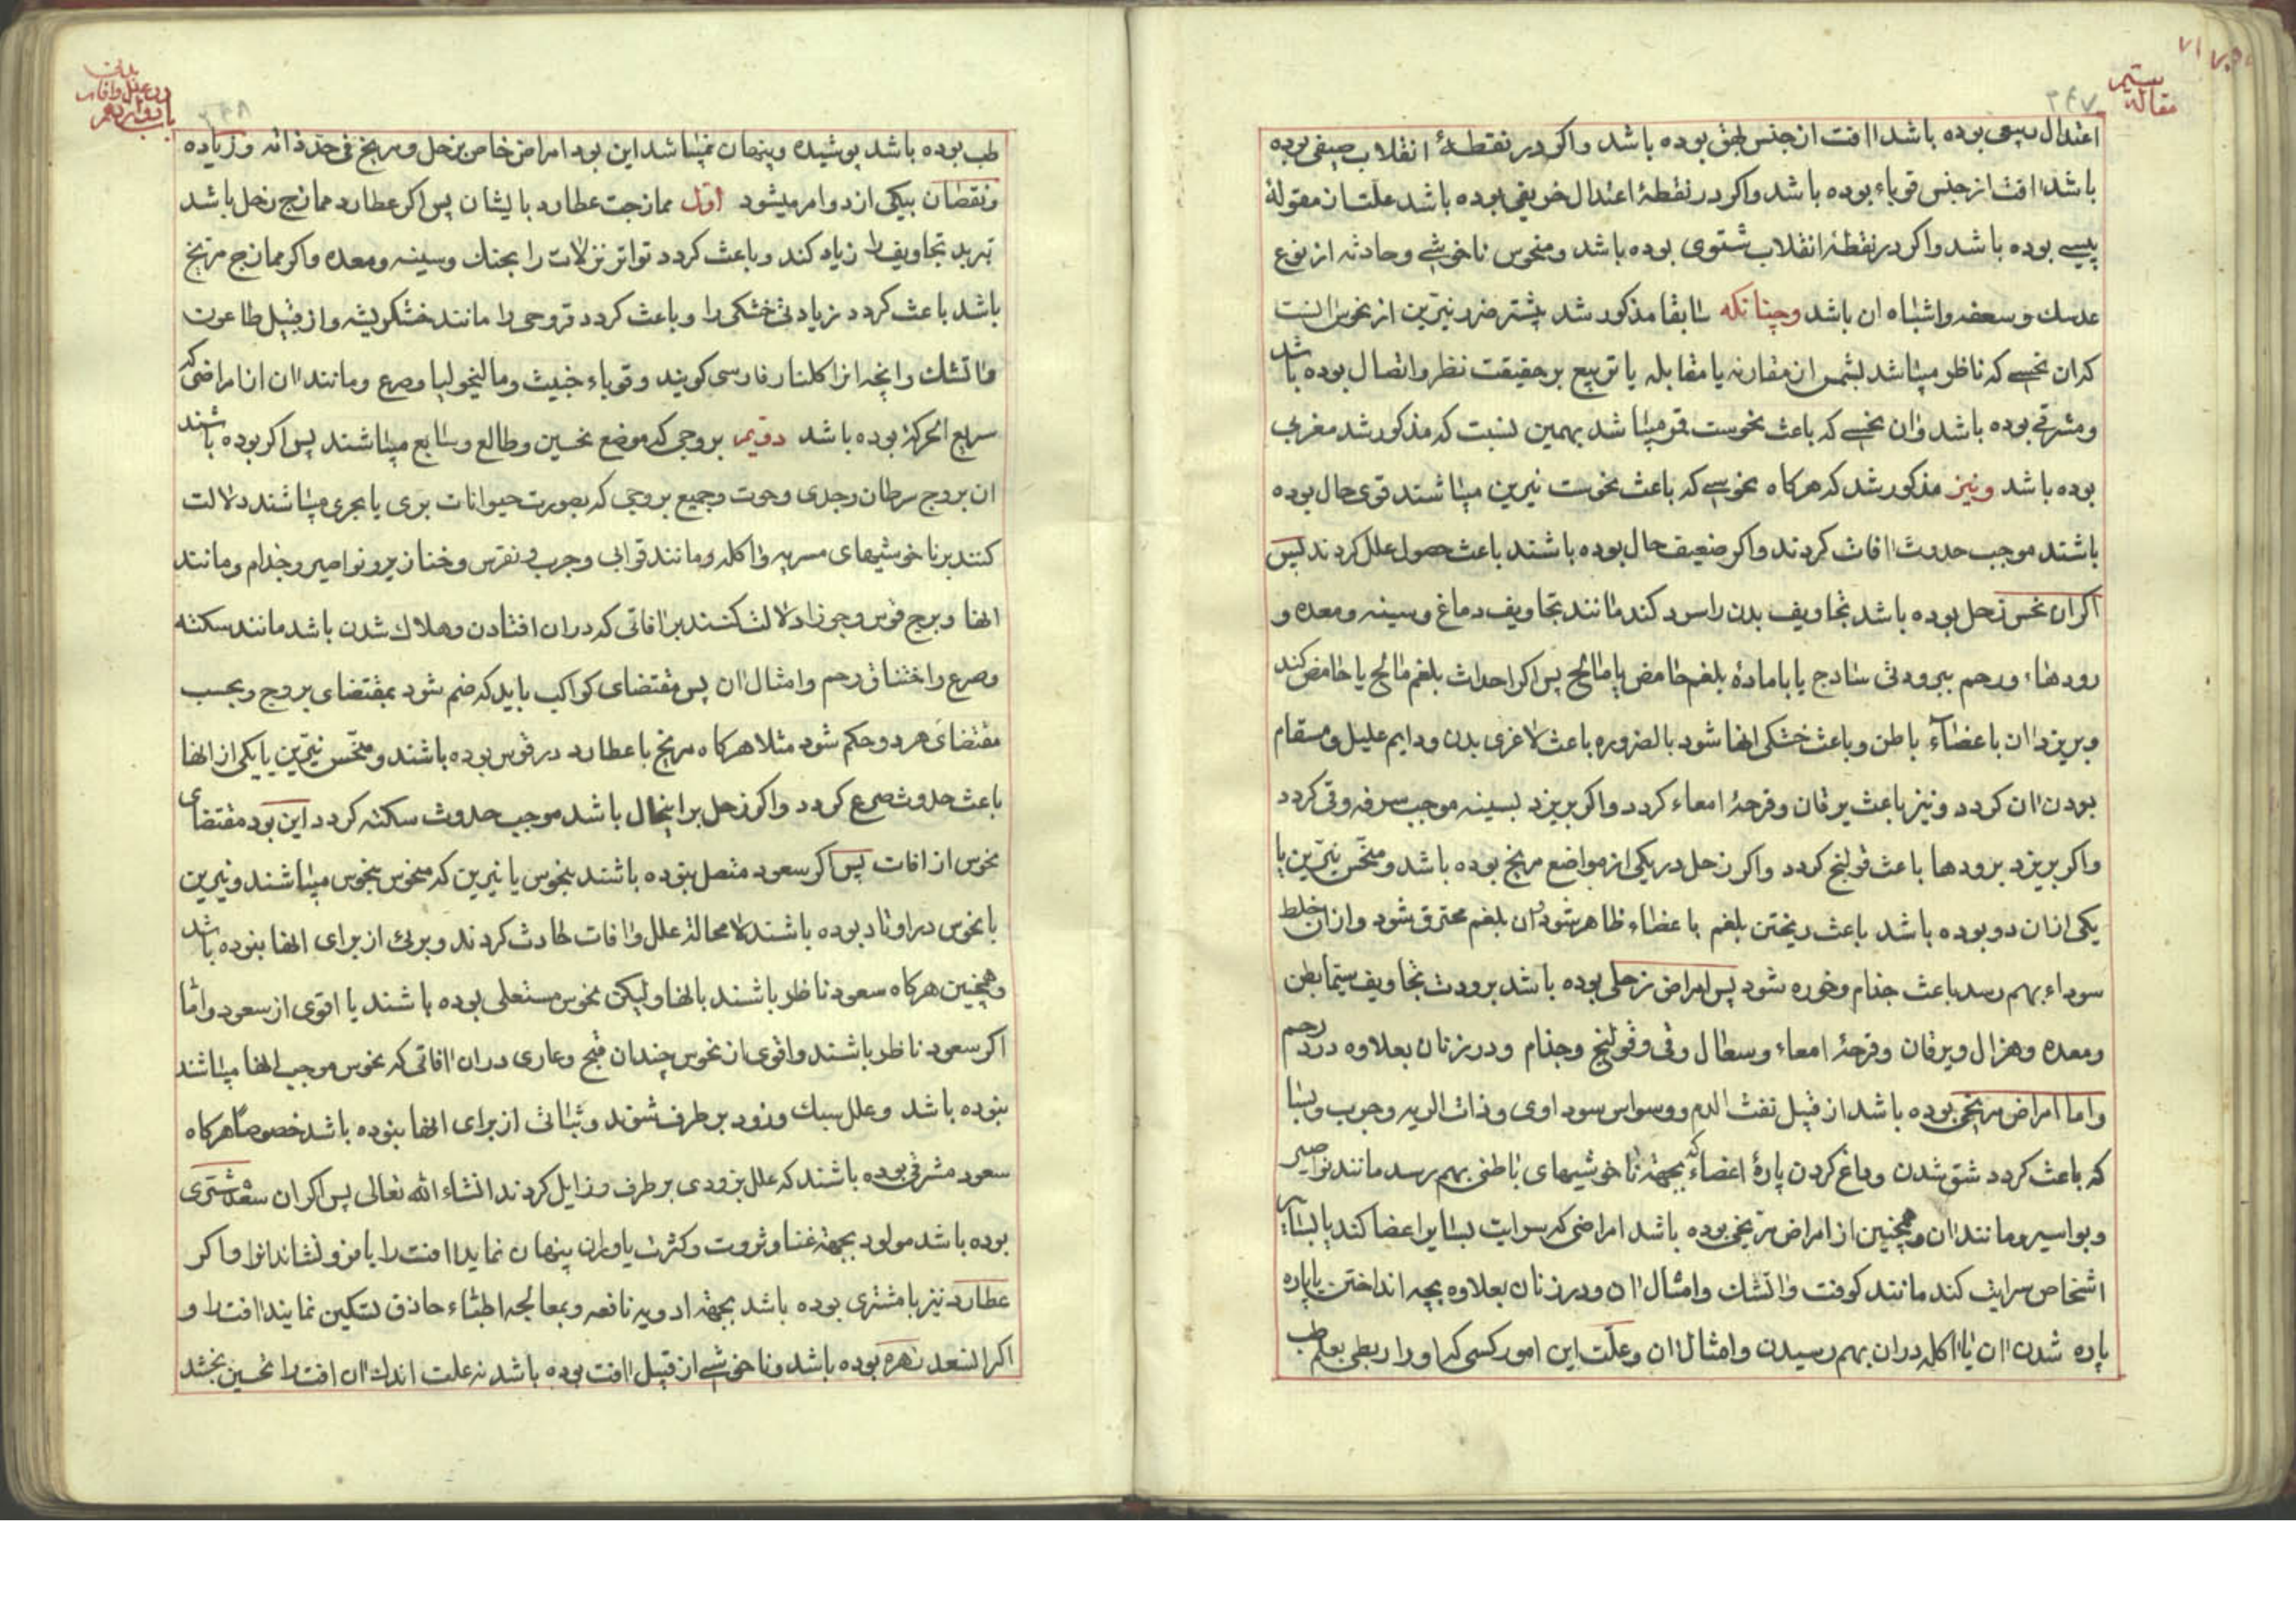 مقاله سیم
۲۴۷
۷۱
اعتدال ربیعی بوده باشد اافت از جنس بهق بوده باشد واکر در نقطهٔ انقلاب صیفی بوده
باشد اافت از جنس قوباء بوده باشد واکر در نقطهٔ اعتدال خریفی بوده باشد علت از مقولهٔ
پیسی بوده باشد واکر در نقطهٔ انقلاب شتوی بوده باشد و منحوس ناخوشی و حادثه از نوع
عدسك وسعفه واشباه ان باشد وچنانکه سابقا مذکور شد بیشتر ضرر نیّرین از نحوس انست
که ان نحسی که ناظر میباشد بشمس از مقارنه یا مقابله یا تربیع بر حقیقت نظر و اتصال بوده باشد
ومشرقی بوده باشد و ان نحسی که باعث نحوست قمر میباشد بهمین نسبت که مذکور شد مغربی
بوده باشد ونیز مذکور شد که هرکاه نحوسی که باعث نحوست نیرین میباشند قوی حال بوده
باشند موجب حدوث اافات کردند واکر ضعیف حال بوده باشند باعث حصول علل کردند پس
اکر ان نحس زحل بوده باشد تجاویف بدن را سرد کند مانند تجاویف دماغ وسینه ومعده و
رودها ورحم ببرودتی ساذج یا با مادهٔ بلغم حامض یا مالح پس اکر احداث بلغم مالح یا حامض کند
وبریزد اان باعضآء باطن وباعث خشکی انها شود بالضروره باعث لاغری بدن ودایم علیل ومسقام
بودن اان کردد ونیز باعث یرقان وقرحهٔ امعاء کردد واکر بریزد بسینه موجب سرفه وقی کردد
واکر بریزد برودها باعث قولنج کردد واکر زحل در یکی از مواضع مریخ بوده باشد ومنحّس نیّرین یا
یکی از ان دو بوده باشد باعث ریختن بلغم باعضاء ظاهر شود وان بلغم محترق شود واز ان خلط
سوداء بهم رسد باعث جذام وخوره شود پس امراض زحلی بوده باشد برودت تجاویف سیّما بطن
ومعده وهزال ویرقان وقرحهٔ امعاء وسعال وقی وقولنج وجذام ودر زنان بعلاوه درد رحم
واما امراض مریخی بوده باشد از قبیل نفث الدم ووسواس سوداوی وذات الریه وجرب وبسا
که باعث کردد شق شدن وداغ کردن پارهٔ اعضاء که بجهة ناخوشیهای باطنی بهم رسد مانند نواصیر
وبواسیر ومانند اان وهمچنین از امراض مرّیخی بوده باشد امراضی که سرایت بسایر اعضا کند یا بسایر
اشخاص سرایت کند مانند کوفت واتشك وامثال اان ودر زنان بعلاوه بچه انداختن یا پاره
پاره شدن اان یا اکله در ان بهم رسیدن وامثال اان وعلّت این امور کسی که او را ربطی بعلم طب
باب دوازدهم
در علل وافات
بدن
۲۴۸
طب بوده باشد پوشیده وپنهان نمیباشد این بود امراض خاص زحل ومریخ فی حدّ ذاته وزیاده
ونقصان بیکی از دو امر میشود اوّل ممازجت عطارد بایشان پس اکر عطارد ممازج زحل باشد
تبرید تجاویف را زیاد کند وباعث کردد تواتر نزلات را بحنك وسینه ومعده واکر ممازج مرّیخ
باشد باعث کردد زیادتی خشکی را وباعث کردد قروحی را مانند خشکریشه واز قبیل طاعون
واتشك وانچه انرا کلنار فارسی کویند وقوباء خبیث ومالیخولیا وصرع ومانند اان از امراضی که
سریع الحرکة بوده باشد دویم بروجی که موضع نحسین وطالع وسابع میباشند پس اکر بوده باشند
ان بروج سرطان وجدی وحوت وجمیع بروجی که بصورت حیوانات بری یا بحری میباشند دلالت
کنند بر ناخوشیهای مسریه واکله ومانند قوابی وجرب ونقرس وخنازیر ونواصیر وجذام ومانند
انها وبرج قوس وجوزا دلالت کنند بر اافاتی که در ان افتادن وهلاك شدن باشد مانند سکته
وصرع واختناق رحم وامثال اان پس مقتضای کواکب باید که ضم شود بمقتضای بروج وبحسب
مقتضای هر دو حکم شود مثلا هرکاه مریخ با عطارد در قوس بوده باشند ومنحّس نیّرین یا یکی از انها
باعث حدوث صرع کردد واکر زحل براینحال باشد موجب حدوث سکته کردد این بود مقتضای
نحوس از افات پس اکر سعود متصل نبوده باشند بنحوس یا نیرین که منحوس بنحوس میباشند ونیرین
با نحوس در اوتاد بوده باشند لا محالة علل واافات حادث کردند وبرئ از برای انها نبوده باشد
وهمچنین هرکاه سعود ناظر باشند بانها ولیکن نحوس مستعلی بوده باشند یا اقوی از سعود وامّا
اکر سعود ناظر باشند واقوی از نحوس چندان قبح وعاری در ان اافاتی که نحوس موجب انها میباشند
نبوده باشد وعلل سبك وزود بر طرف شوند وثباتی از برای انها نبوده باشد خصوصاً هرکاه
سعود مشرقی بوده باشند که علل بزودی بر طرف وزایل کردند انشاء الله تعالی پس اکر ان سعد مشتری
بوده باشد مولود بجهة غنا وثروت وکثرت یاوران پنهان نماید اافت را یا فرو نشاند انرا واکر
عطارد نیز با مشتری بوده باشد بجهة ادویه نافعه وبمعالجه اطبّاء حاذق تسکین نمایند اافت را و
اکر انسعد زهره بوده باشد وناخوشی از قبیل اافت بوده باشد نه علت اندك اان افت را تحسین بخشد